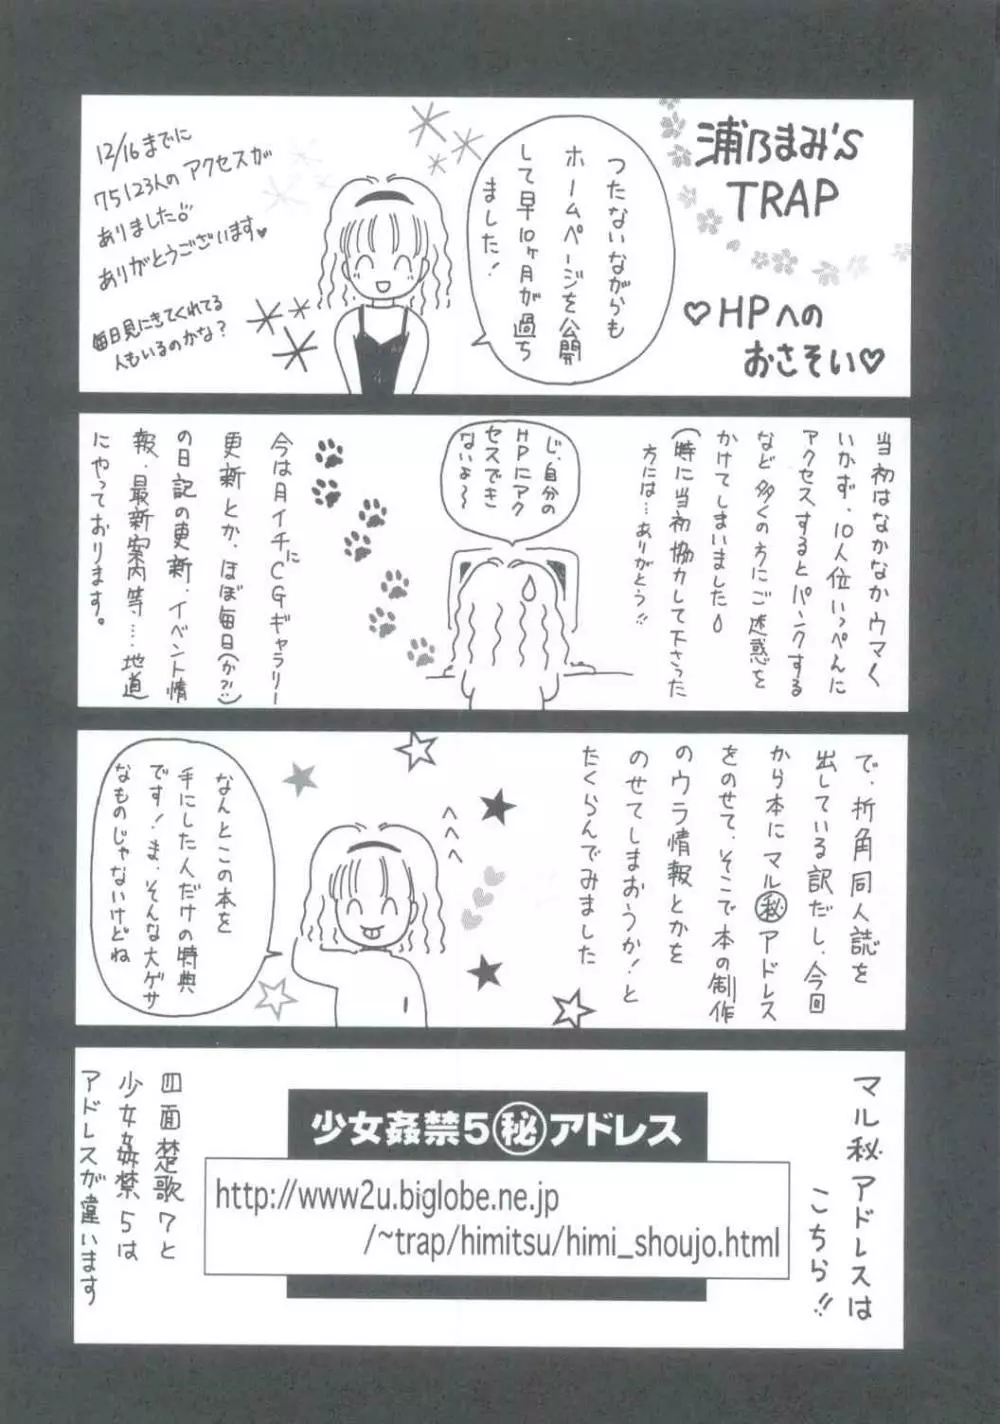 浦乃まみ'S
TRAP
♡HPへの
おさそい♡
つたないながらも
ホームページを公開
して早10ヶ月が過ち
ました!
12/16までに
75123人のアクセスが
ありました
ありがとうございます♥
毎日見にきてくれてる
人もいるのかな?
当初はなかなかウマく
いかず、10人位いっぺんに
アクセスするとパンクする
など多くの方にご迷惑を
かけてしまいました
(特に当初協力して下さった
方には…ありがとう!!
じ、自分の
HPにアク
セスでき
ないよ〜
今は月イチに
CGギャラリー
更新とか、ほぼ毎日(か?!)
の日記の更新、イベント情
報、最新案内等……地道
にやっております。
で、折角同人誌を
出している訳だし、今回
から本にマル㊙アドレス
をのせて、そこで本の制作
のウラ情報とかを
のせてしまおうか!と
たくらんでみました
へへへ
なんとこの本を
手にした人だけの特典
です!ま、そんな大ゲサ
なものじゃないけどね
マル秘アドレスは
こちら!!
少女姦禁5㊙アドレス
http://www2u.biglobe.ne.jp
/~trap/himitsu/himi_shoujo.html
四面楚歌7と
少女姦禁5は
アドレスが違います